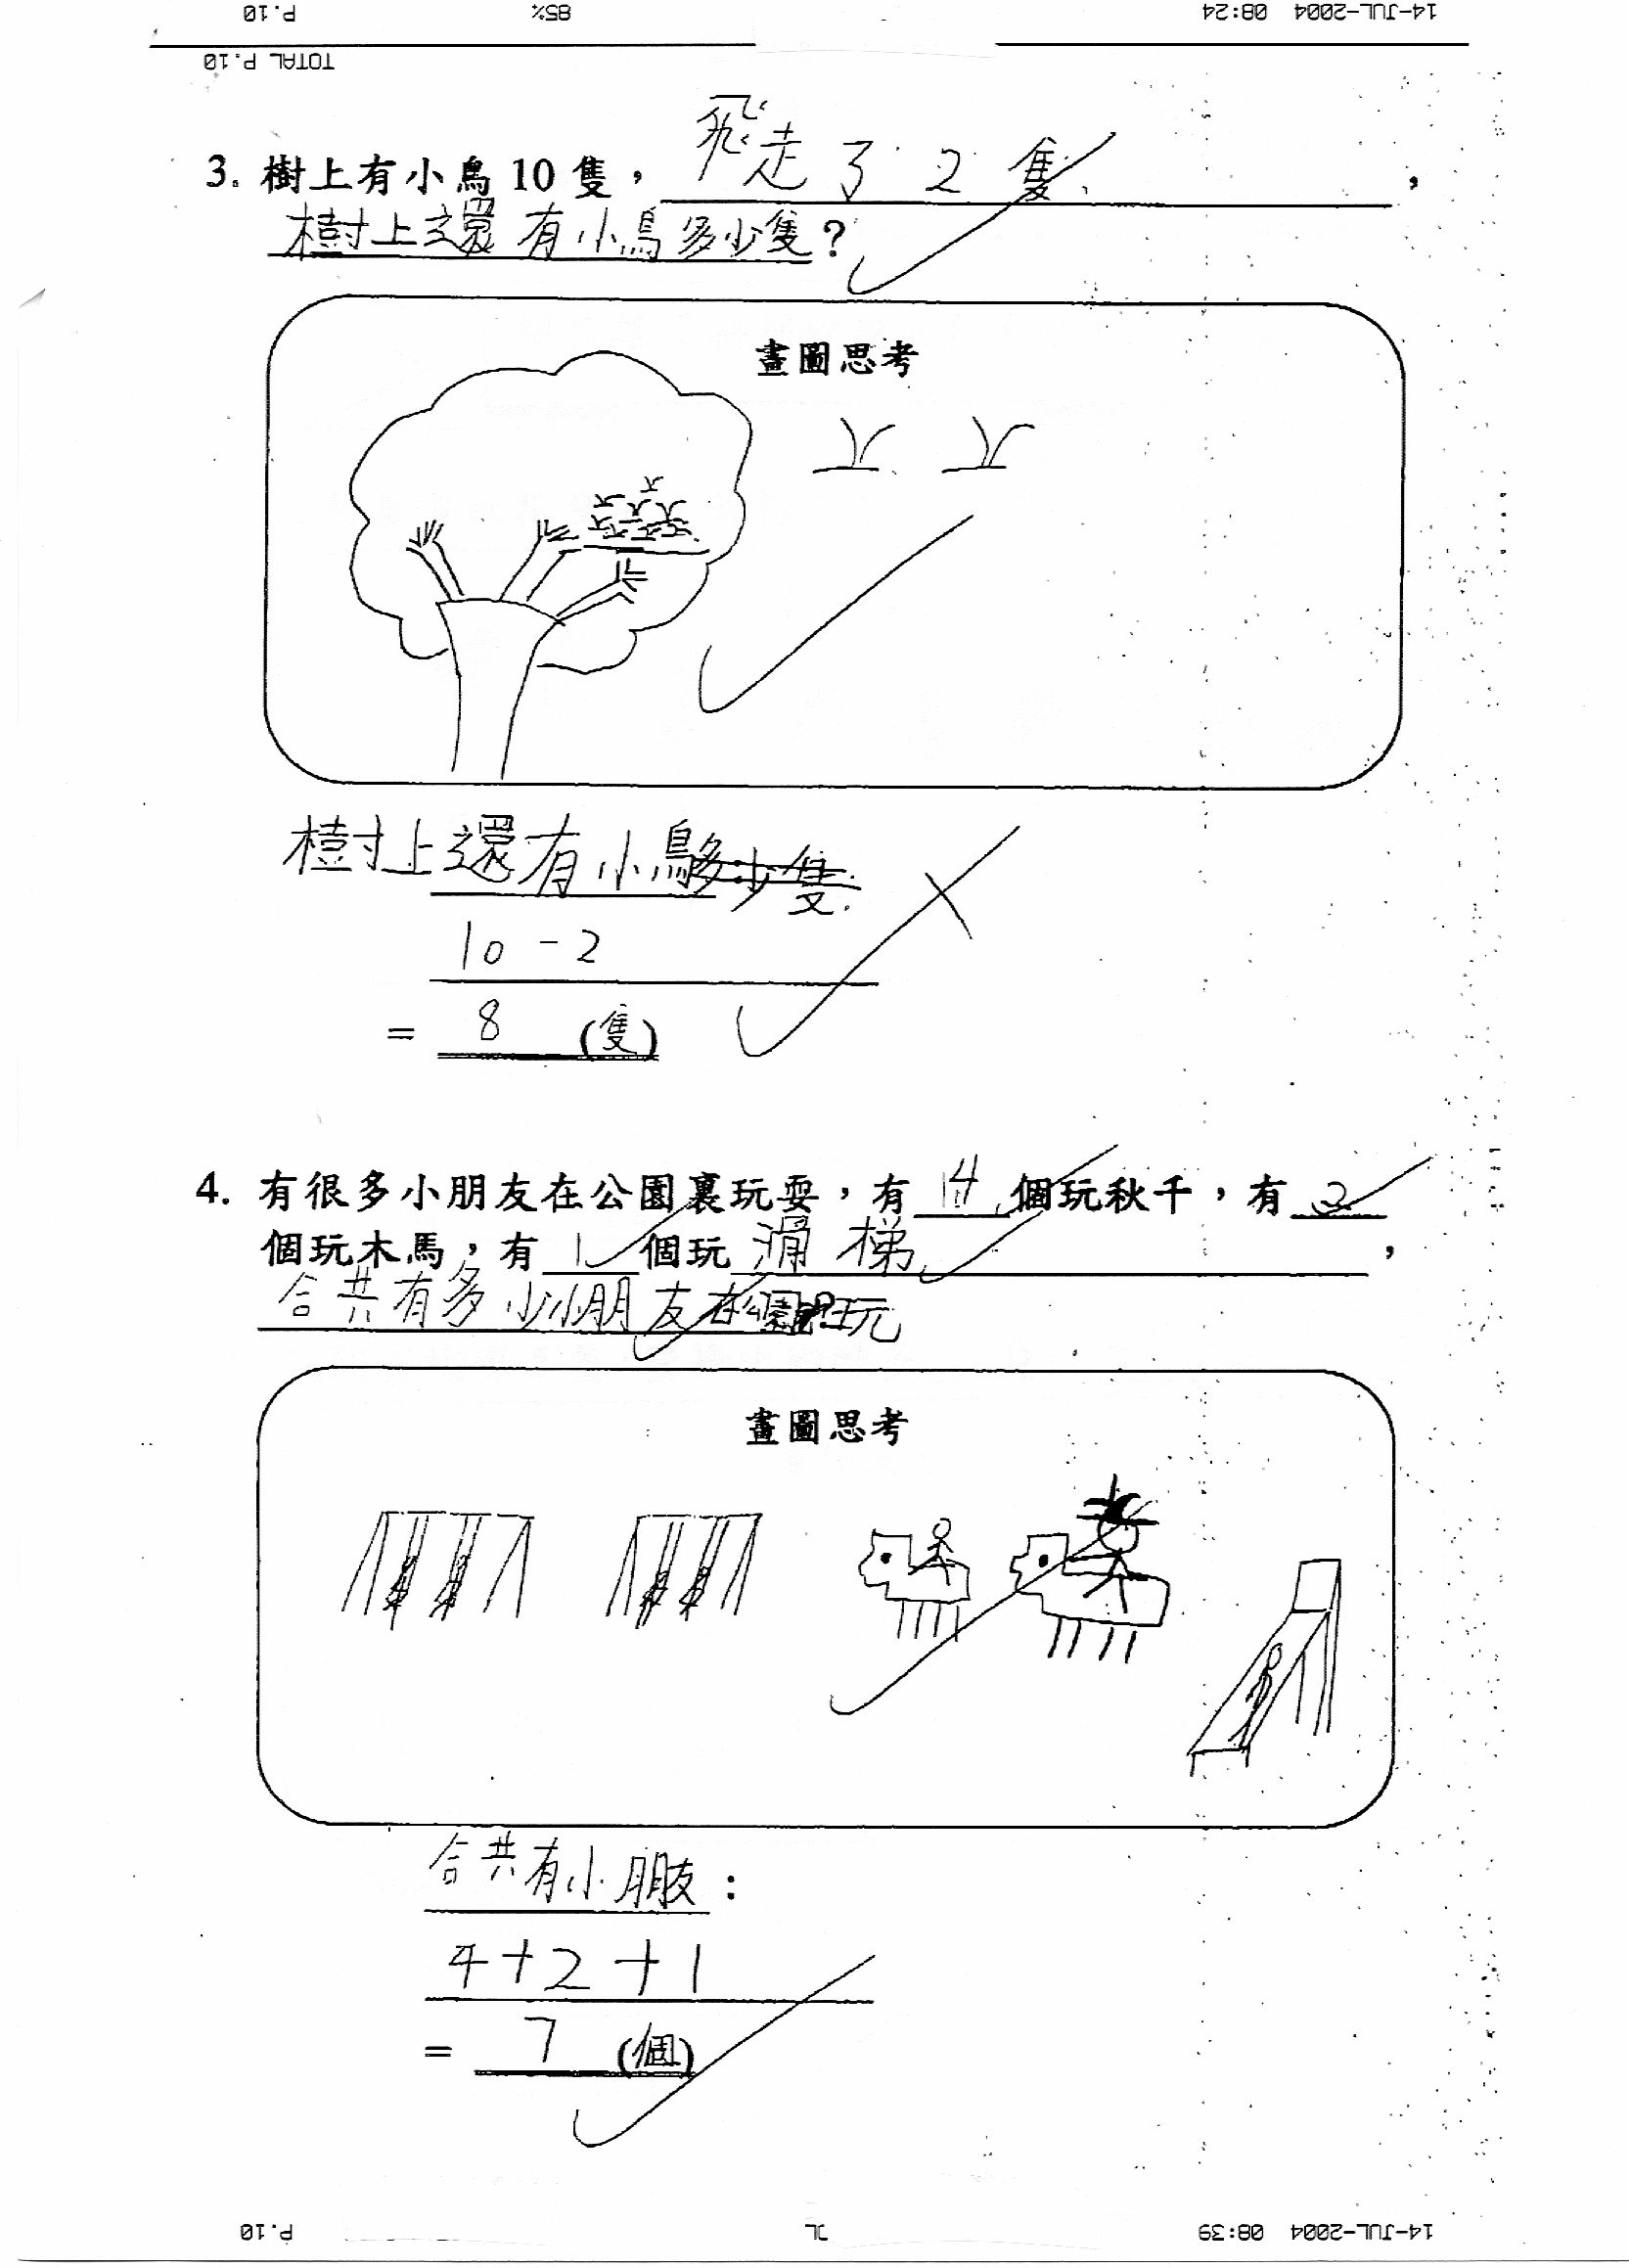 P.10 85% 14-JUL-2004 08:24
TOTAL P.10
3. 樹上有小鳥10隻，飛走了2隻，
樹上還有小鳥多少隻？
畫圖思考
樹上還有小鳥多少隻：
10-2
= 8 (隻)
4. 有很多小朋友在公園裏玩耍，有4個玩秋千，有2
個玩木馬，有1個玩滑梯，
合共有多少小朋友在公園玩
畫圖思考
合共有小朋友：
4+2+1
= 7 (個)
P.10 14-JUL-2004 08:39